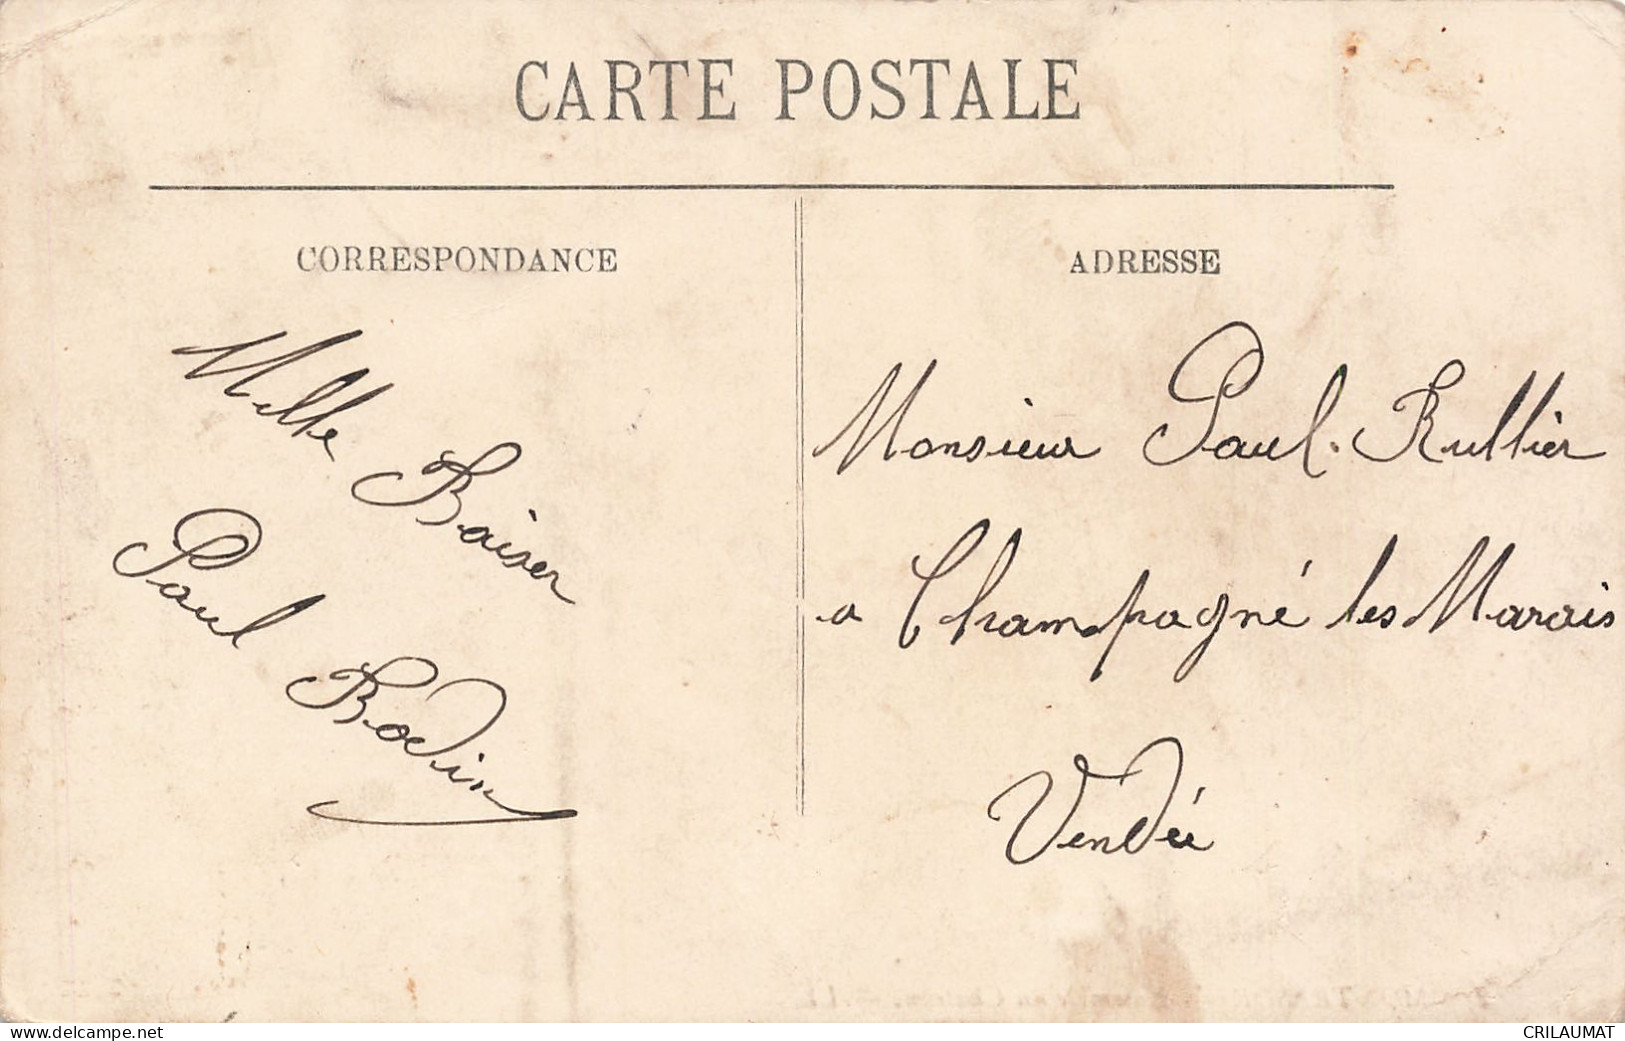 CARTE POSTALE
CORRESPONDANCE
Mille
Baiser
Paul
Bodin
ADRESSE
Monsieur Paul Rullier
a Champagné les Marais
Vendée
www.delcampe.net
CRILAUMAT